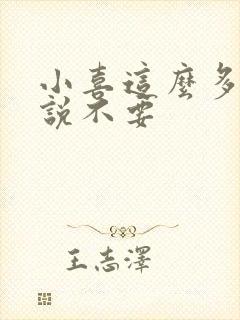 小喜這麼多
說不要
王志澤